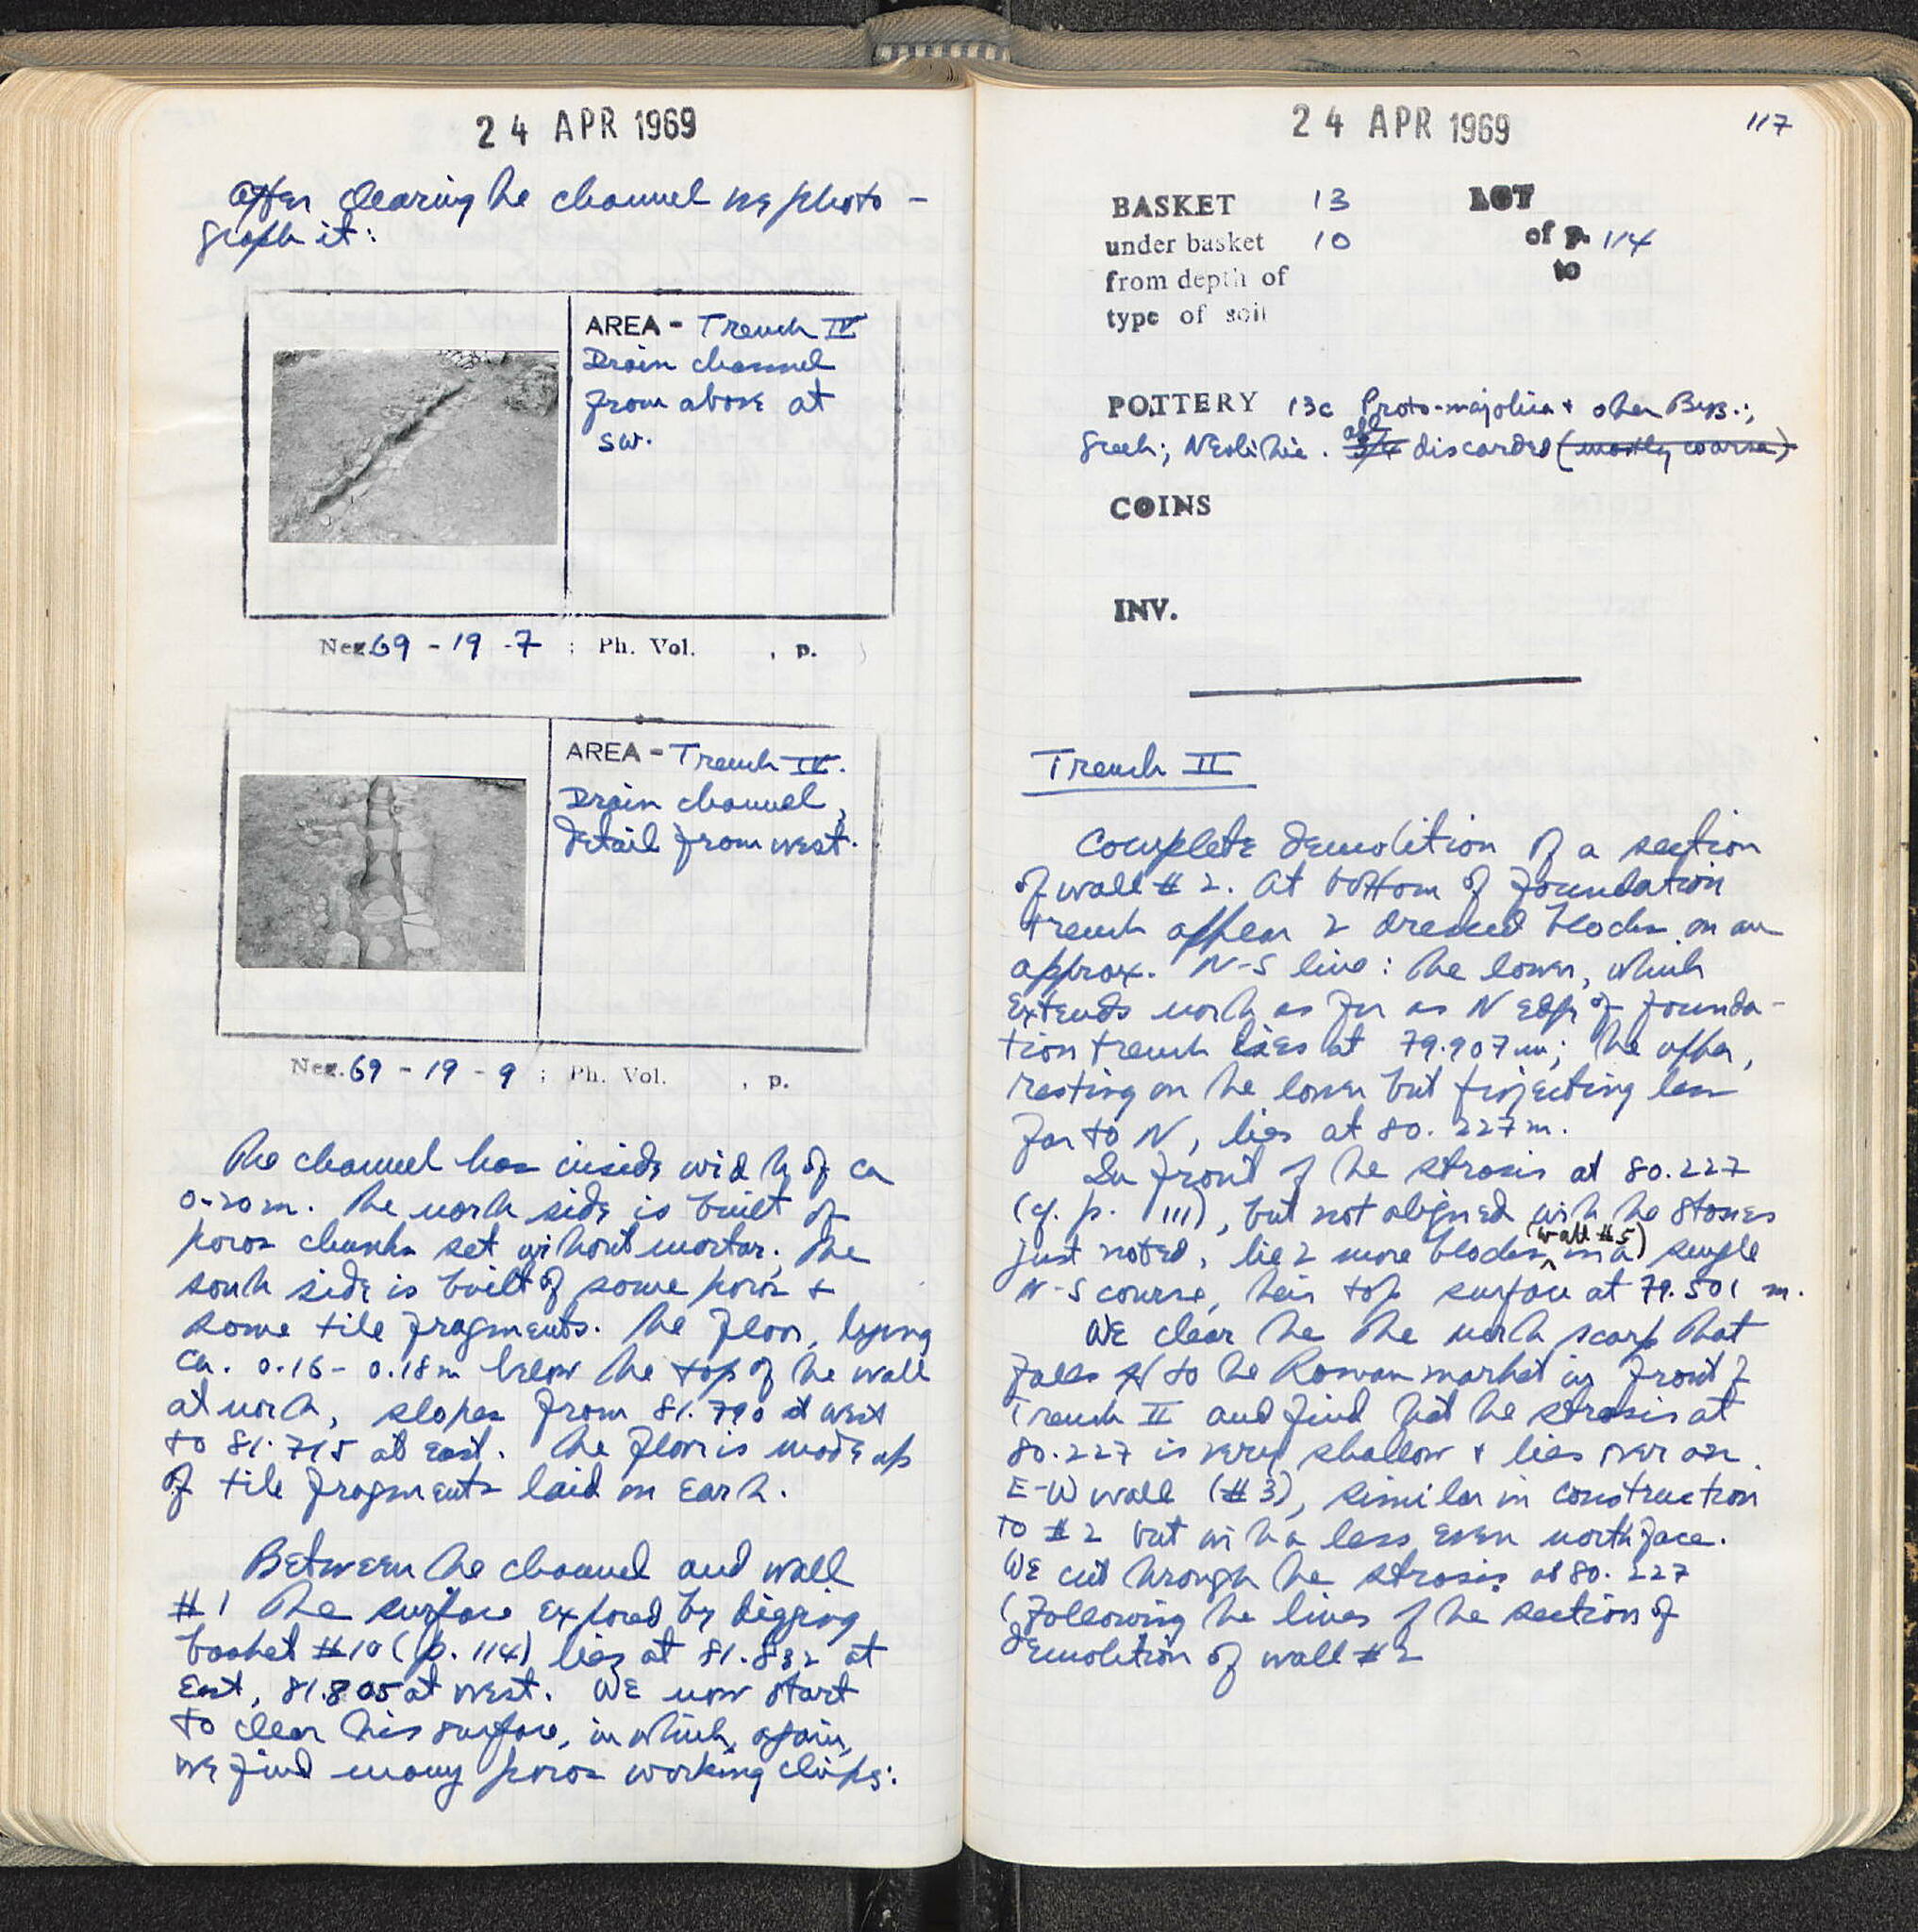 24 APR 1969
After clearing the channel we photo-
graph it:
AREA - Trench IV
Drain channel
from above at
SW.
Neg. 69 - 19 - 7 ; Ph. Vol. , p.
AREA - Trench IV.
Drain channel,
detail from west.
Neg. 69 - 19 - 9 ; Ph. Vol. , p.
The channel has inside width of ca
0.20 m. The north side is built of
poros chunks set without mortar; The
south side is built of some poros +
some tile fragments. The floor, lying
ca. 0.16 - 0.18 m below the top of the wall
at north, slopes from 81.790 at west
to 81.715 at east. The floor is made up
of tile fragments laid on earth.
Between the channel and wall
#1 the surface exposed by digging
basket #10 (p. 114) lies at 81.832 at
East, 81.805 at west. We now start
to clear this surface, in which, again,
we find many poros working chips:
24 APR 1969
117
BASKET 13 LOT
under basket 10 of p. 114
from depth of to
type of soil
POTTERY 13c Proto-majolica + other Byz.;
Greek; Neolithic. all discarded (mostly coarse)
COINS
INV.
Trench II
Complete demolition of a section
of wall #2. At bottom of foundation
trench appear 2 dressed blocks on an
approx. N-S line: the lower, which
extends north as far as N edge of founda-
tion trench lies at 79.907 m; the upper,
resting on the lower but projecting less
far to N, lies at 80.227 m.
In front of the strosis at 80.227
(cf. p. 111), but not aligned with the stones
just noted, lie 2 more blocks (wall #5) in a single
N-S course, their top surface at 79.501 m.
We clear the the north scarp that
falls to the Roman market in front of
Trench II and find that the strosis at
80.227 is very shallow + lies over an
E-W wall (#3), similar in construction
to #2 but with a less even north face.
We cut through the strosis at 80.227
(following the lines of the section of
demolition of wall #2